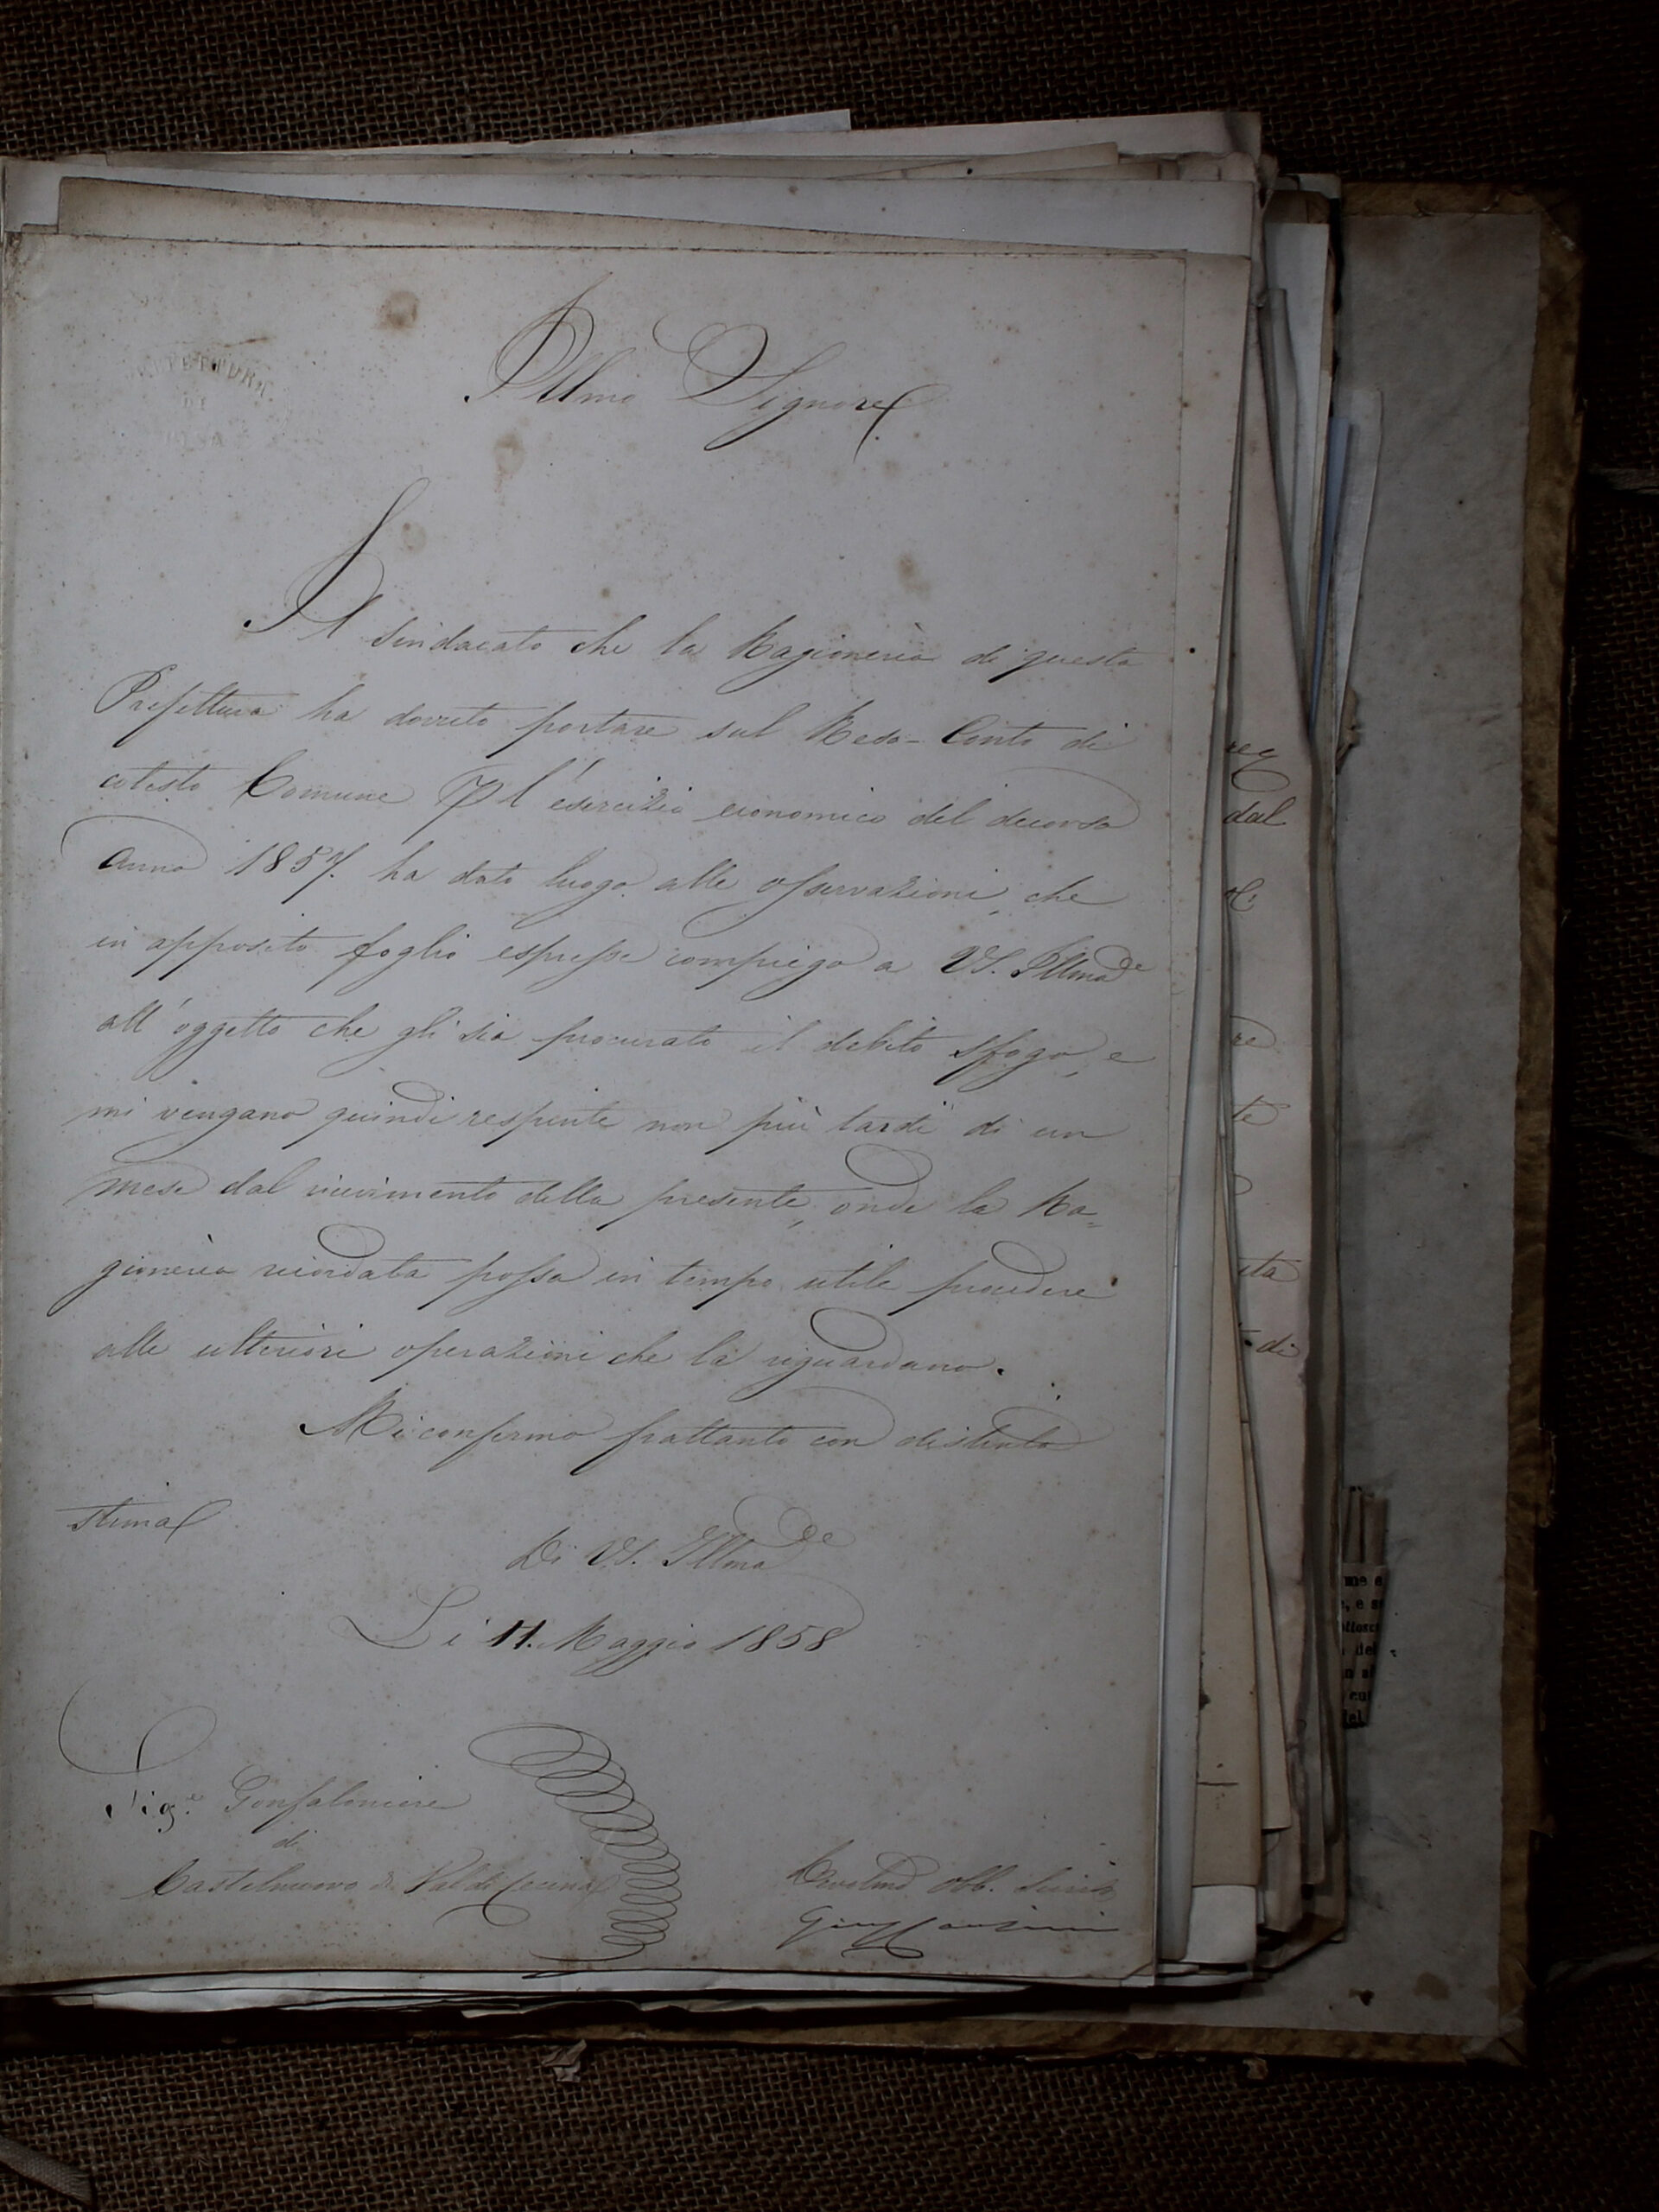 PREFETTURA
DI
PISA
Illmo Signore
Il Sindacato che la Ragioneria di questa
Prefettura ha dovuto portare sul Reso-Conto di
cotesto Comune P l'esercizio economico del decorso
Anno 1857. ha dato luogo alle osservazioni, che
in apposito foglio espresse compiego a VS. Illma
all'oggetto che gli sia procurato il debito sfogo, e
mi vengano quindi respinte non più tardi di un
mese dal ricevimento della presente, onde la Ra=
gioneria ricordata possa in tempo utile procedere
alle ulteriori operazioni che la riguardano.
Mi confermo frattanto con distinta
stima
Di VS. Illma
Li 11. Maggio 1858
Sig.e Gonfaloniere
di
Castelnuovo di Val di Cecina
Devotmo Obb. Servit
dal
di
re
te
ta
di
me e
, e
del